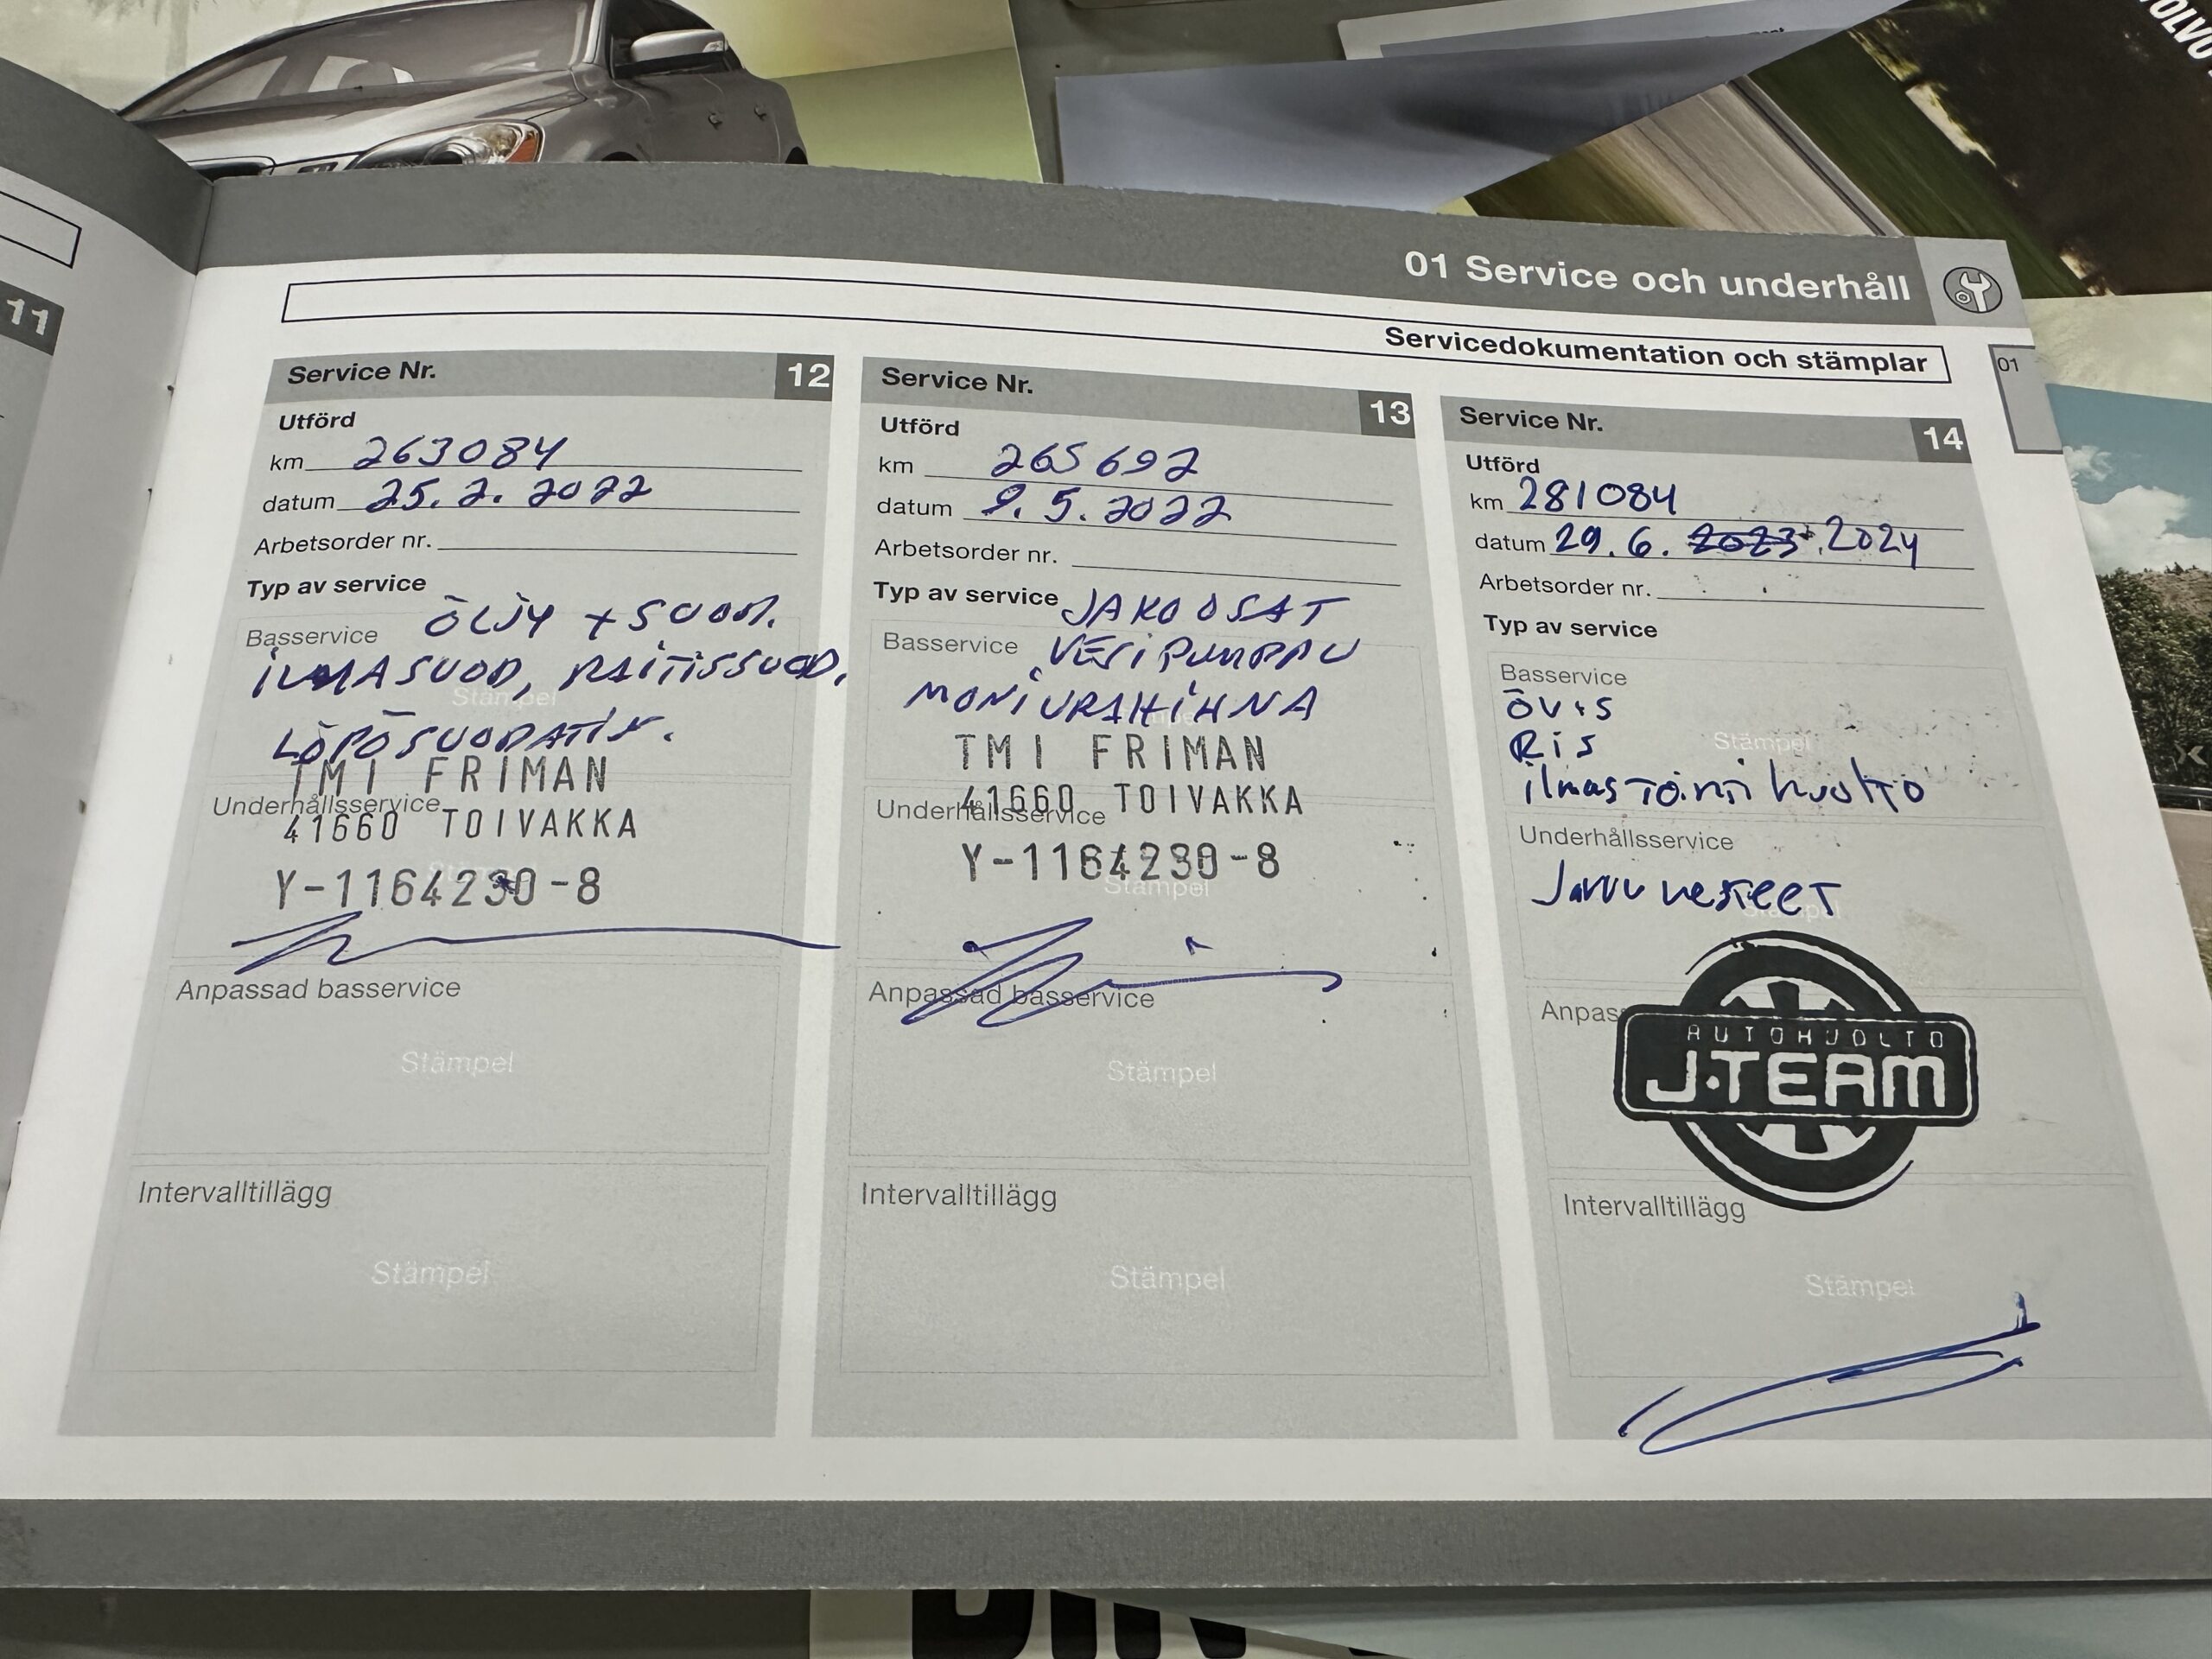 VOLVO
11
01 Service och underhåll
Servicedokumentation och stämplar
01
Service Nr. 12
Utförd
km 263084
datum 25.2.2022
Arbetsorder nr.
Typ av service
ÖLJY + SUOD.
Basservice
iLMASUOD, RAITISSUOD,
Stämpel
TMI FRIMAN
Underhållsservice
41660 TOIVAKKA
Y-1164230-8
Anpassad basservice
Stämpel
Intervalltillägg
Stämpel
Service Nr. 13
Utförd
km 265692
datum 9.5.2022
Arbetsorder nr.
Typ av service JAKO OSAT
Basservice VESiPUMPPU
MONiURAHiHNA
TMI FRIMAN
41660 TOIVAKKA
Underhållsservice
Y-1164230-8
Stämpel
Anpassad basservice
Stämpel
Intervalltillägg
Stämpel
Service Nr. 14
Utförd
km 281084
datum 29.6. 2023 .2024
Arbetsorder nr.
Typ av service
Basservice
öv+s
Ris
Stämpel
ilmastointi huolto
Underhållsservice
Jarru nesteet
Anpas
AUTOHUOLTO
J-TEAM
Intervalltillägg
Stämpel